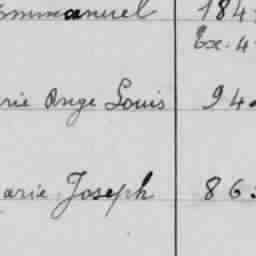 ommanuel 184
Ex. 4
rie Ange Louis 94
arie Joseph 863